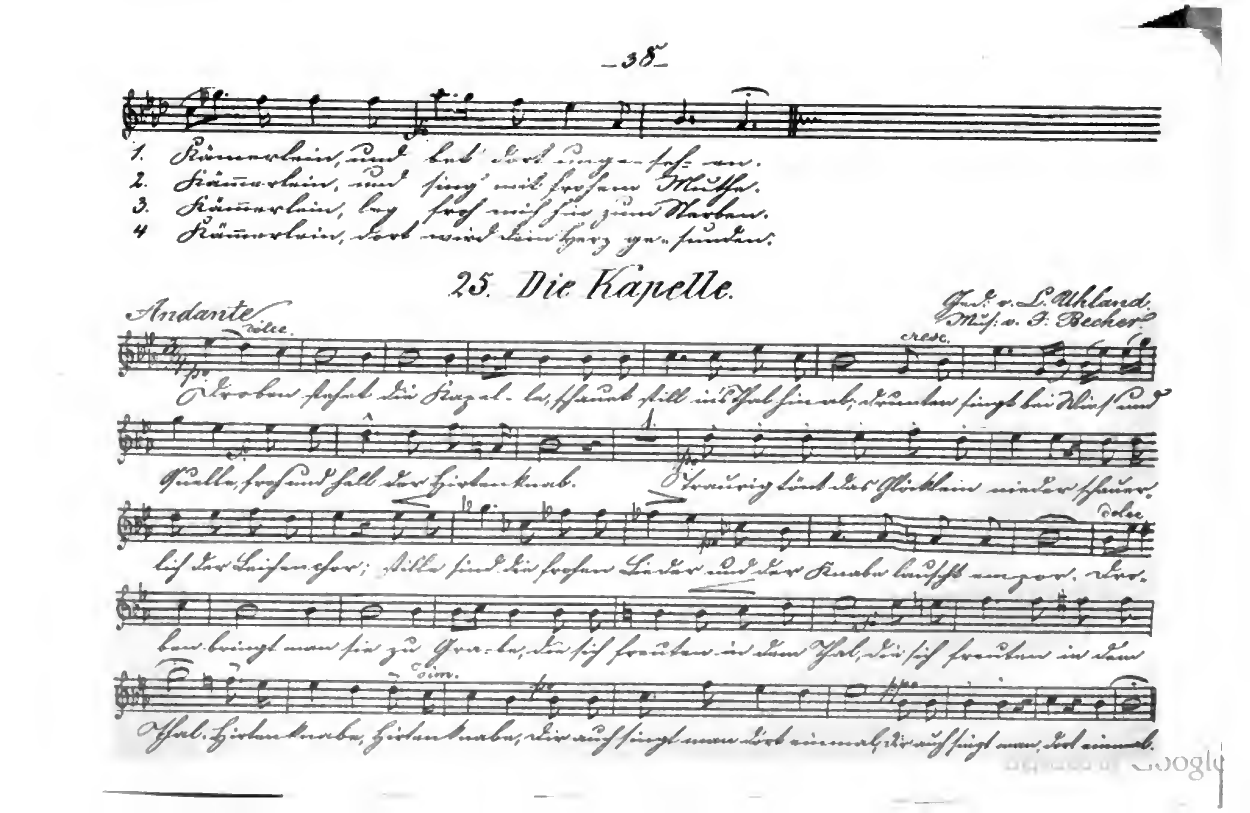 -38-
1. Kämerlein, und bet' dort unge-seh=en.
2. Kämmerlein, und sing' mit frohem Muthe.
3. Kämmerlein, leg froh mich hin zum Sterben.
4 Kämmerlein, dort wird dein Herz ge-sunden.
25. Die Kapelle.
Andante
Ged: v. L. Uhland.
Mus: v. J: Becher.
dolce. cresc.
po
Droben stehet die Kapel-le, schauet still in's Thal hinab; drunten singt bei Wies' und
1
Quelle, froh und hell der Hirtenknab. Traurig tönt das Glöcklein nieder schauer-
dolce
lich der Leichenchor; stille sind die frohen Lieder und der Knabe lauscht empor. Dro-
ben bringt man sie zu Gra-be, die sich freuten in dem Thal, die sich freuten in dem
dim. po ppo
Thal. Hirtenknabe, Hirtenknabe, dir auch singt man dort einmal, dir auch singt man, dort einmal.
Google